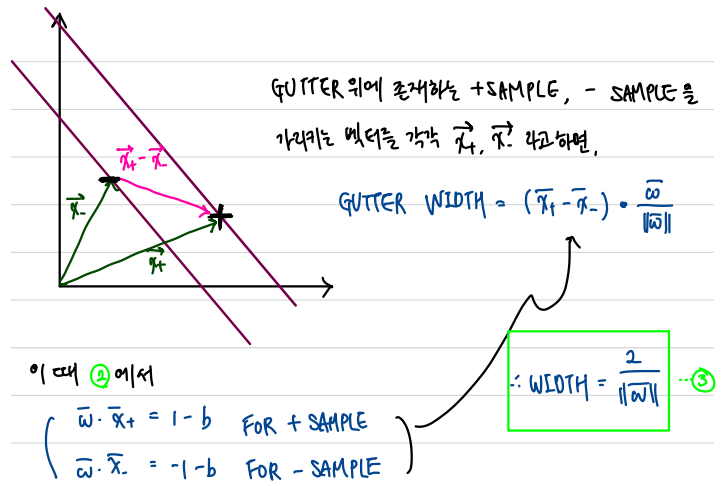 GUTTER 위에 존재하는 +SAMPLE, - SAMPLE을
가리키는 벡터를 각각 x⃗₊, x⃗₋ 라고하면,
x⃗₊-x⃗₋
x⃗₋
x⃗₊
GUTTER WIDTH = (x̅₊-x̅₋)・w̅/||w̅||
이때 ②에서
w̅・x̅₊ = 1-b FOR + SAMPLE
w̅・x̅₋ = -1-b FOR - SAMPLE
∴ WIDTH = 2/||w̅|| ...③